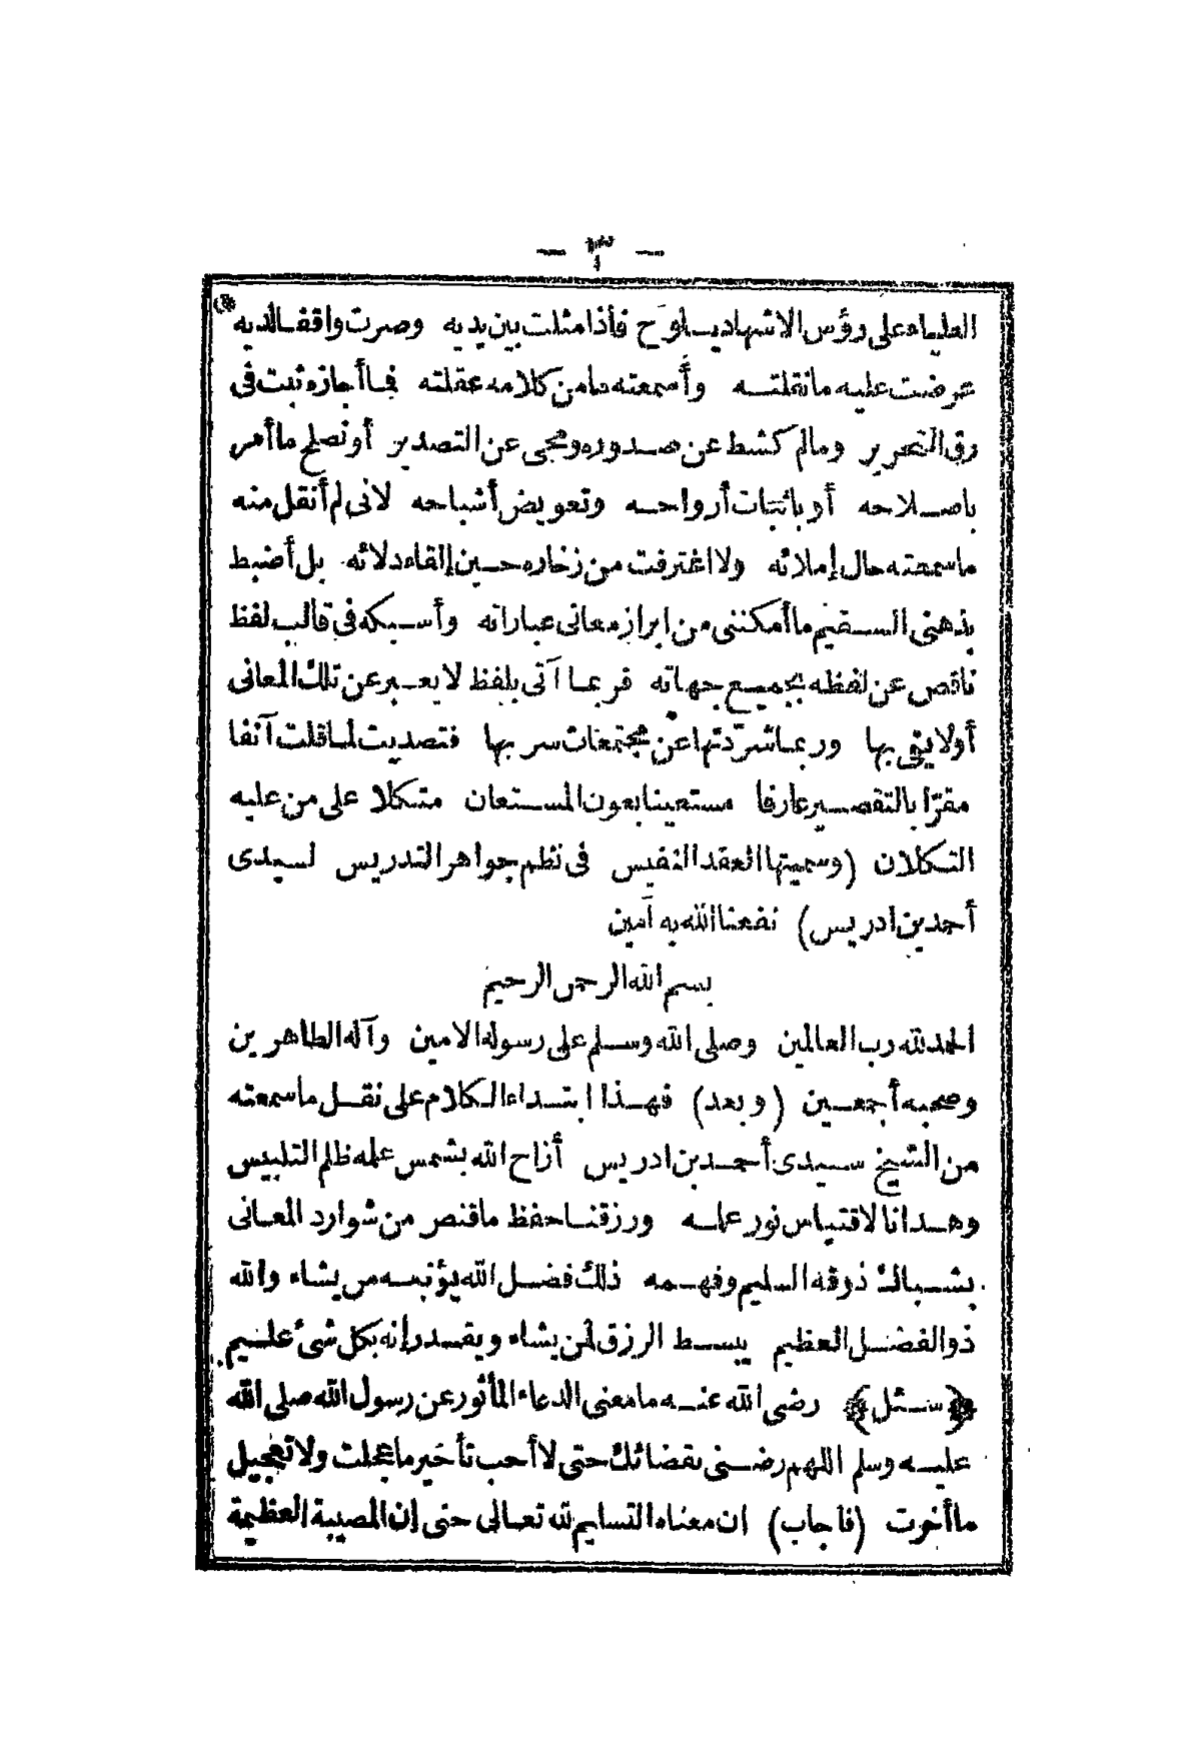 — ٣ —
العلياء على رؤس الاشهاد يلوح فأذا مثلت بين يديه وصرت واقفا لديه
عرضت عليه ما نقلته وأسمعته ما من كلامه عقلته فما أجازه ثبت في
رق التحرير ومالم كشط عن صدوره ومحى عن التصدير أو نصلح ما أمر
باصلاحه أو باثبات أرواحه وتعويض أشباحه لانى لم أنقل منه
ما سمعته حال إملائه ولا اغترفت من زخاره حين إلقاء دلائه بل أضبط
بذهنى السقيم ما أمكننى من ابراز معانى عباراته وأسبكه في قالب لفظ
ناقص عن لفظه بجميع جهاته فربما آتى بلفظ لا يعبر عن تلك المعانى
أولا يفى بها وربما شرّدتها عن مجتمعات سربها فتصديت لما قلت آنفا
مقرّا بالتقصير عارفا مستعينا بعون المستعان متكلا على من عليه
التكلان (وسميتها العقد النفيس فى نظم جواهر التدريس لسيدى
أحمد بن ادريس) نفعنا الله به آمين
بسم الله الرحمن الرحيم
الحمد لله رب العالمين وصلى الله وسلم على رسوله الامين وآله الطاهرين
وصحبه أجمعين (وبعد) فهذا ابتداء الكلام على نقل ما سمعته
من الشيخ سيدى أحمد بن ادريس أزاح الله بشمس علمه ظلم التلبيس
وهدانا لاقتباس نور علمه ورزقنا حفظ ما قنص من شوارد المعانى
بشباك ذوقه السليم وفهمه ذلك فضل الله يؤتيه من يشاء والله
ذو الفضل العظيم يبسط الرزق لمن يشاء ويقدر إنه بكل شئ عليم
﴿سئل﴾ رضى الله عنه ما معنى الدعاء المأثور عن رسول الله صلى الله
عليه وسلم اللهم رضنى بقضائك حتى لا أحب تأخير ما عجلت ولا تعجيل
ما أخرت (فأجاب) ان معناه التسليم لله تعالى حتى إن المصيبة العظيمة